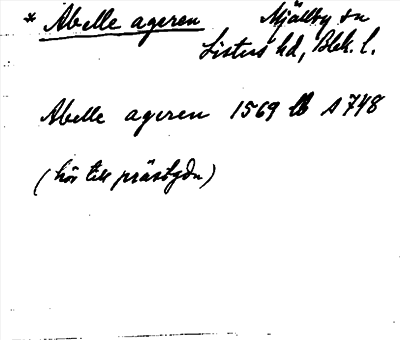 * Abelle ageren Mjällby sn
Listers hd, Blek. l.
Abelle ageren 1569 lb s 748
(hör till prästgdn)